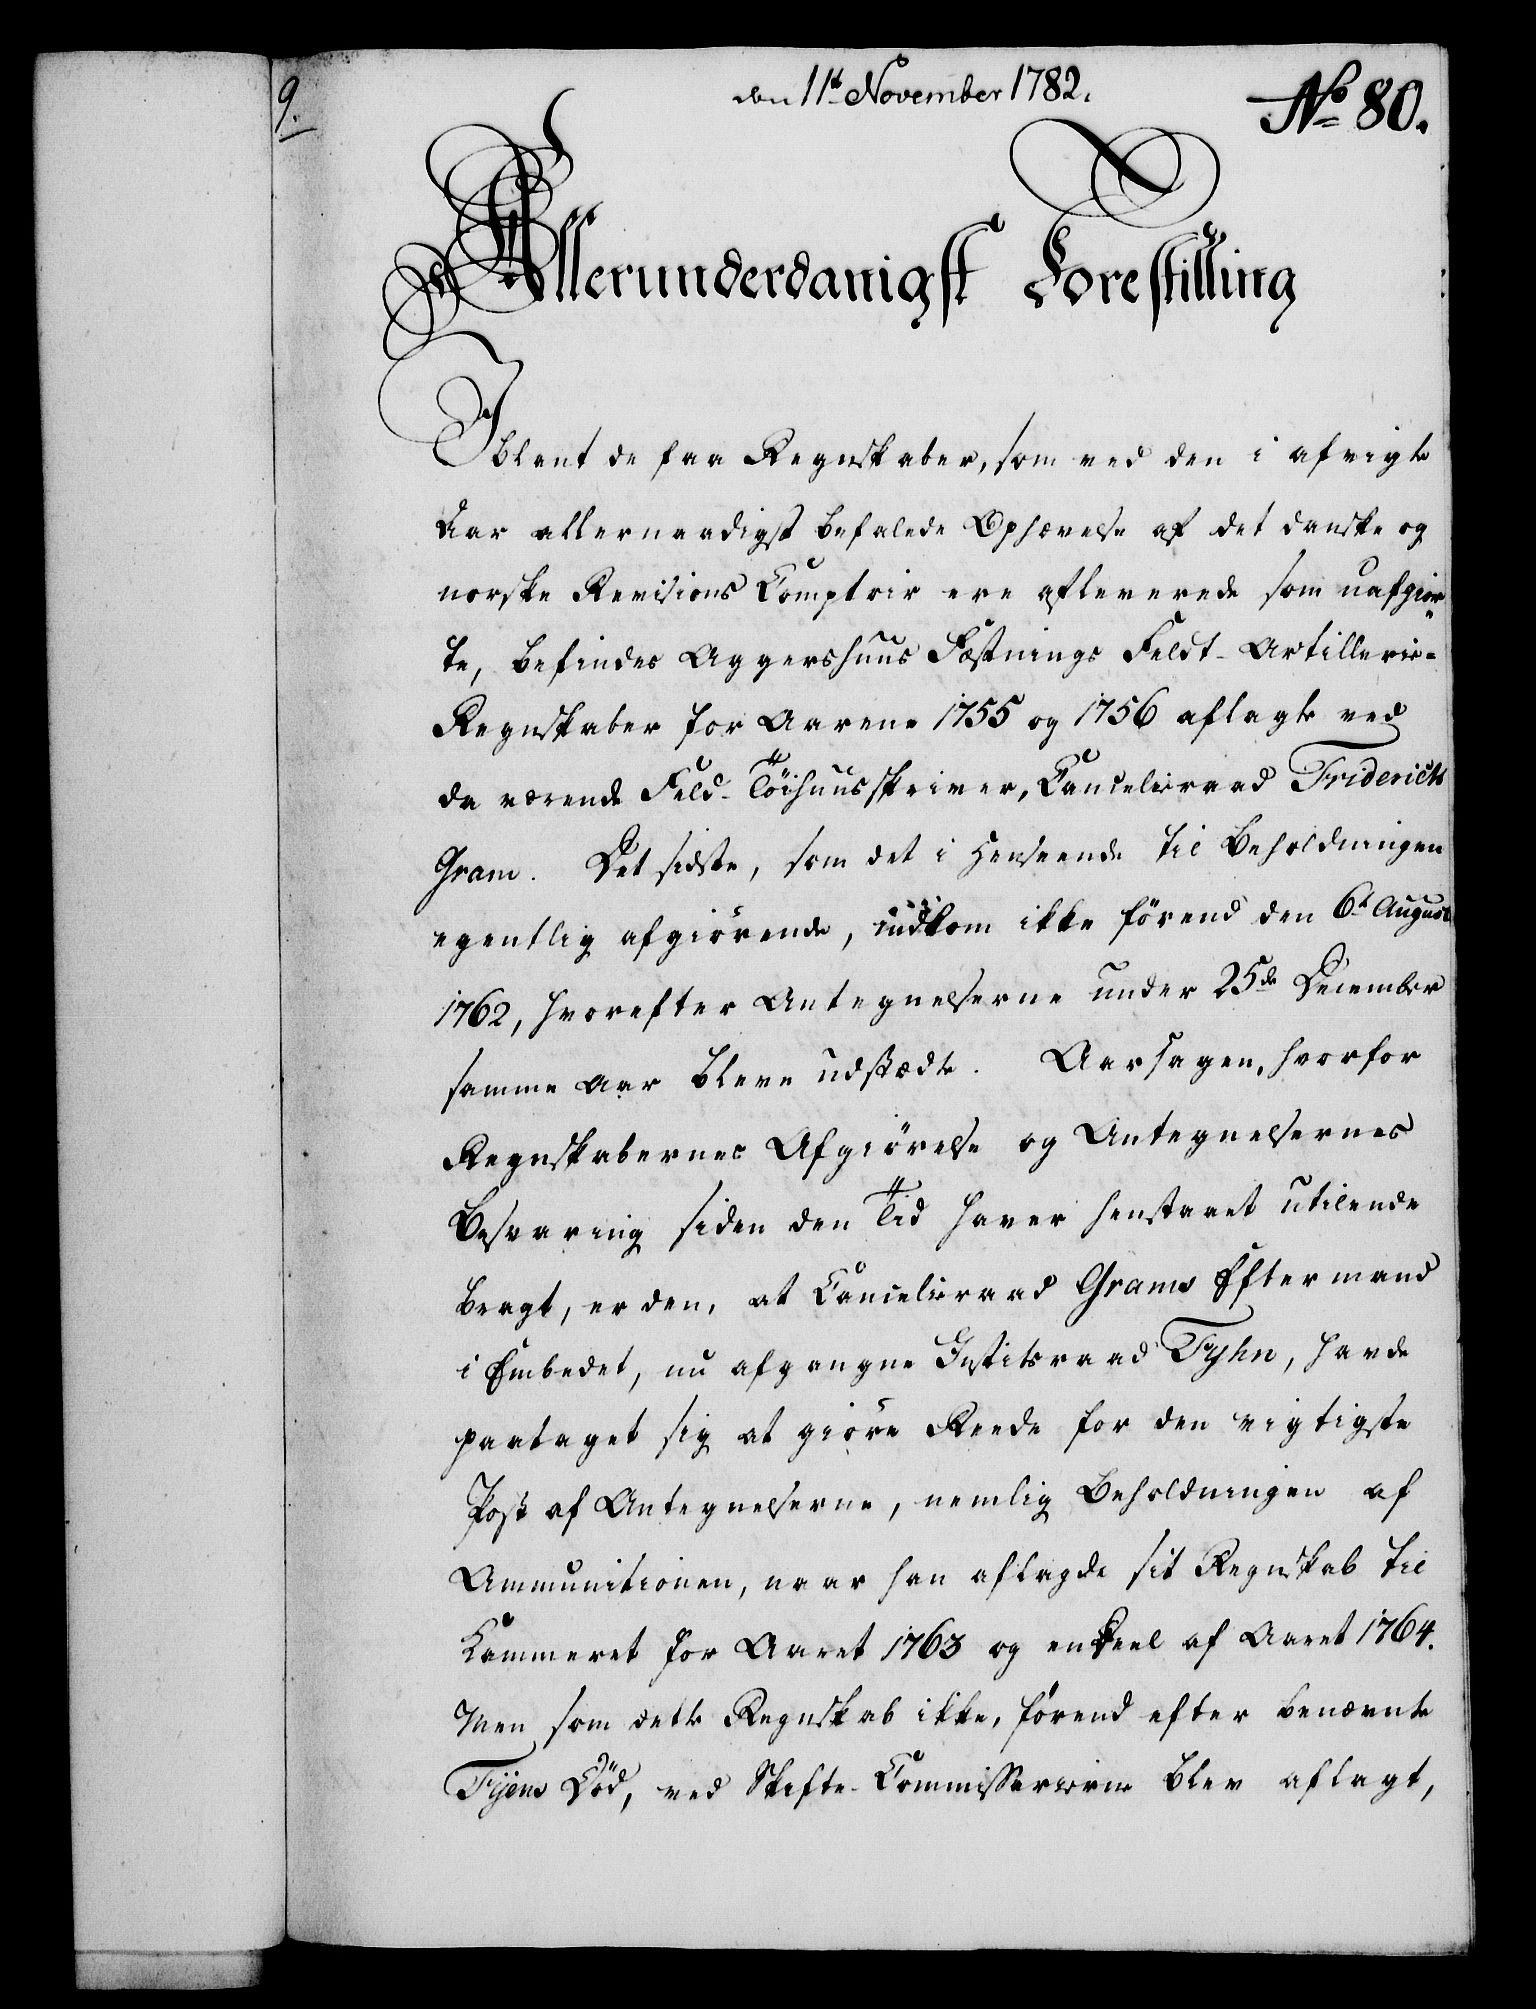 9.
den 11t November 1782.
No 80.
Allerunderdanigst Forestilling
Iblant de faa Regnskaber, som ved den i afvigte
Aar allernaadigst befalede Ophævelse af det danske og
norske Revisions Comptoir ere afleverede som uafgior„
te, befindes Aggershuus Fæstnings Feldt-Artillerie-
Regnskaber for Aarene 1755 og 1756 aflagte ved
da værende Feld-Tøihuusskriver, Cancelieraad Friderich
Gram. Det sidste, som det i Henseende til Beholdningen
egentlig afgiørende, indkom ikke førend den 6t August
1762, hvorefter Antegnelserne under 25de December
samme Aar bleve udstædte. Aarsagen, hvorfor
Regnskabernes Afgiørelse og Antegnelsernes
Besvaring siden den Tid haver henstaaet utilende
bragt, er den, at Cancelieraad Grams Eftermand
i Embedet, nu afgangne Justitsraad Tyhn, havde
paataget sig at giøre Reede for den vigtigste
Post af Antegnelserne, nemlig Beholdningen af
Ammunitionen, naar han aflagde sit Regnskab til
Kammeret for Aaret 1763 og en Deel af Aaret 1764.
Men som dette Regnskab ikke, førend efter benævnte
Tyens Død, ved Skifte-Commissairerne blev aflagt,